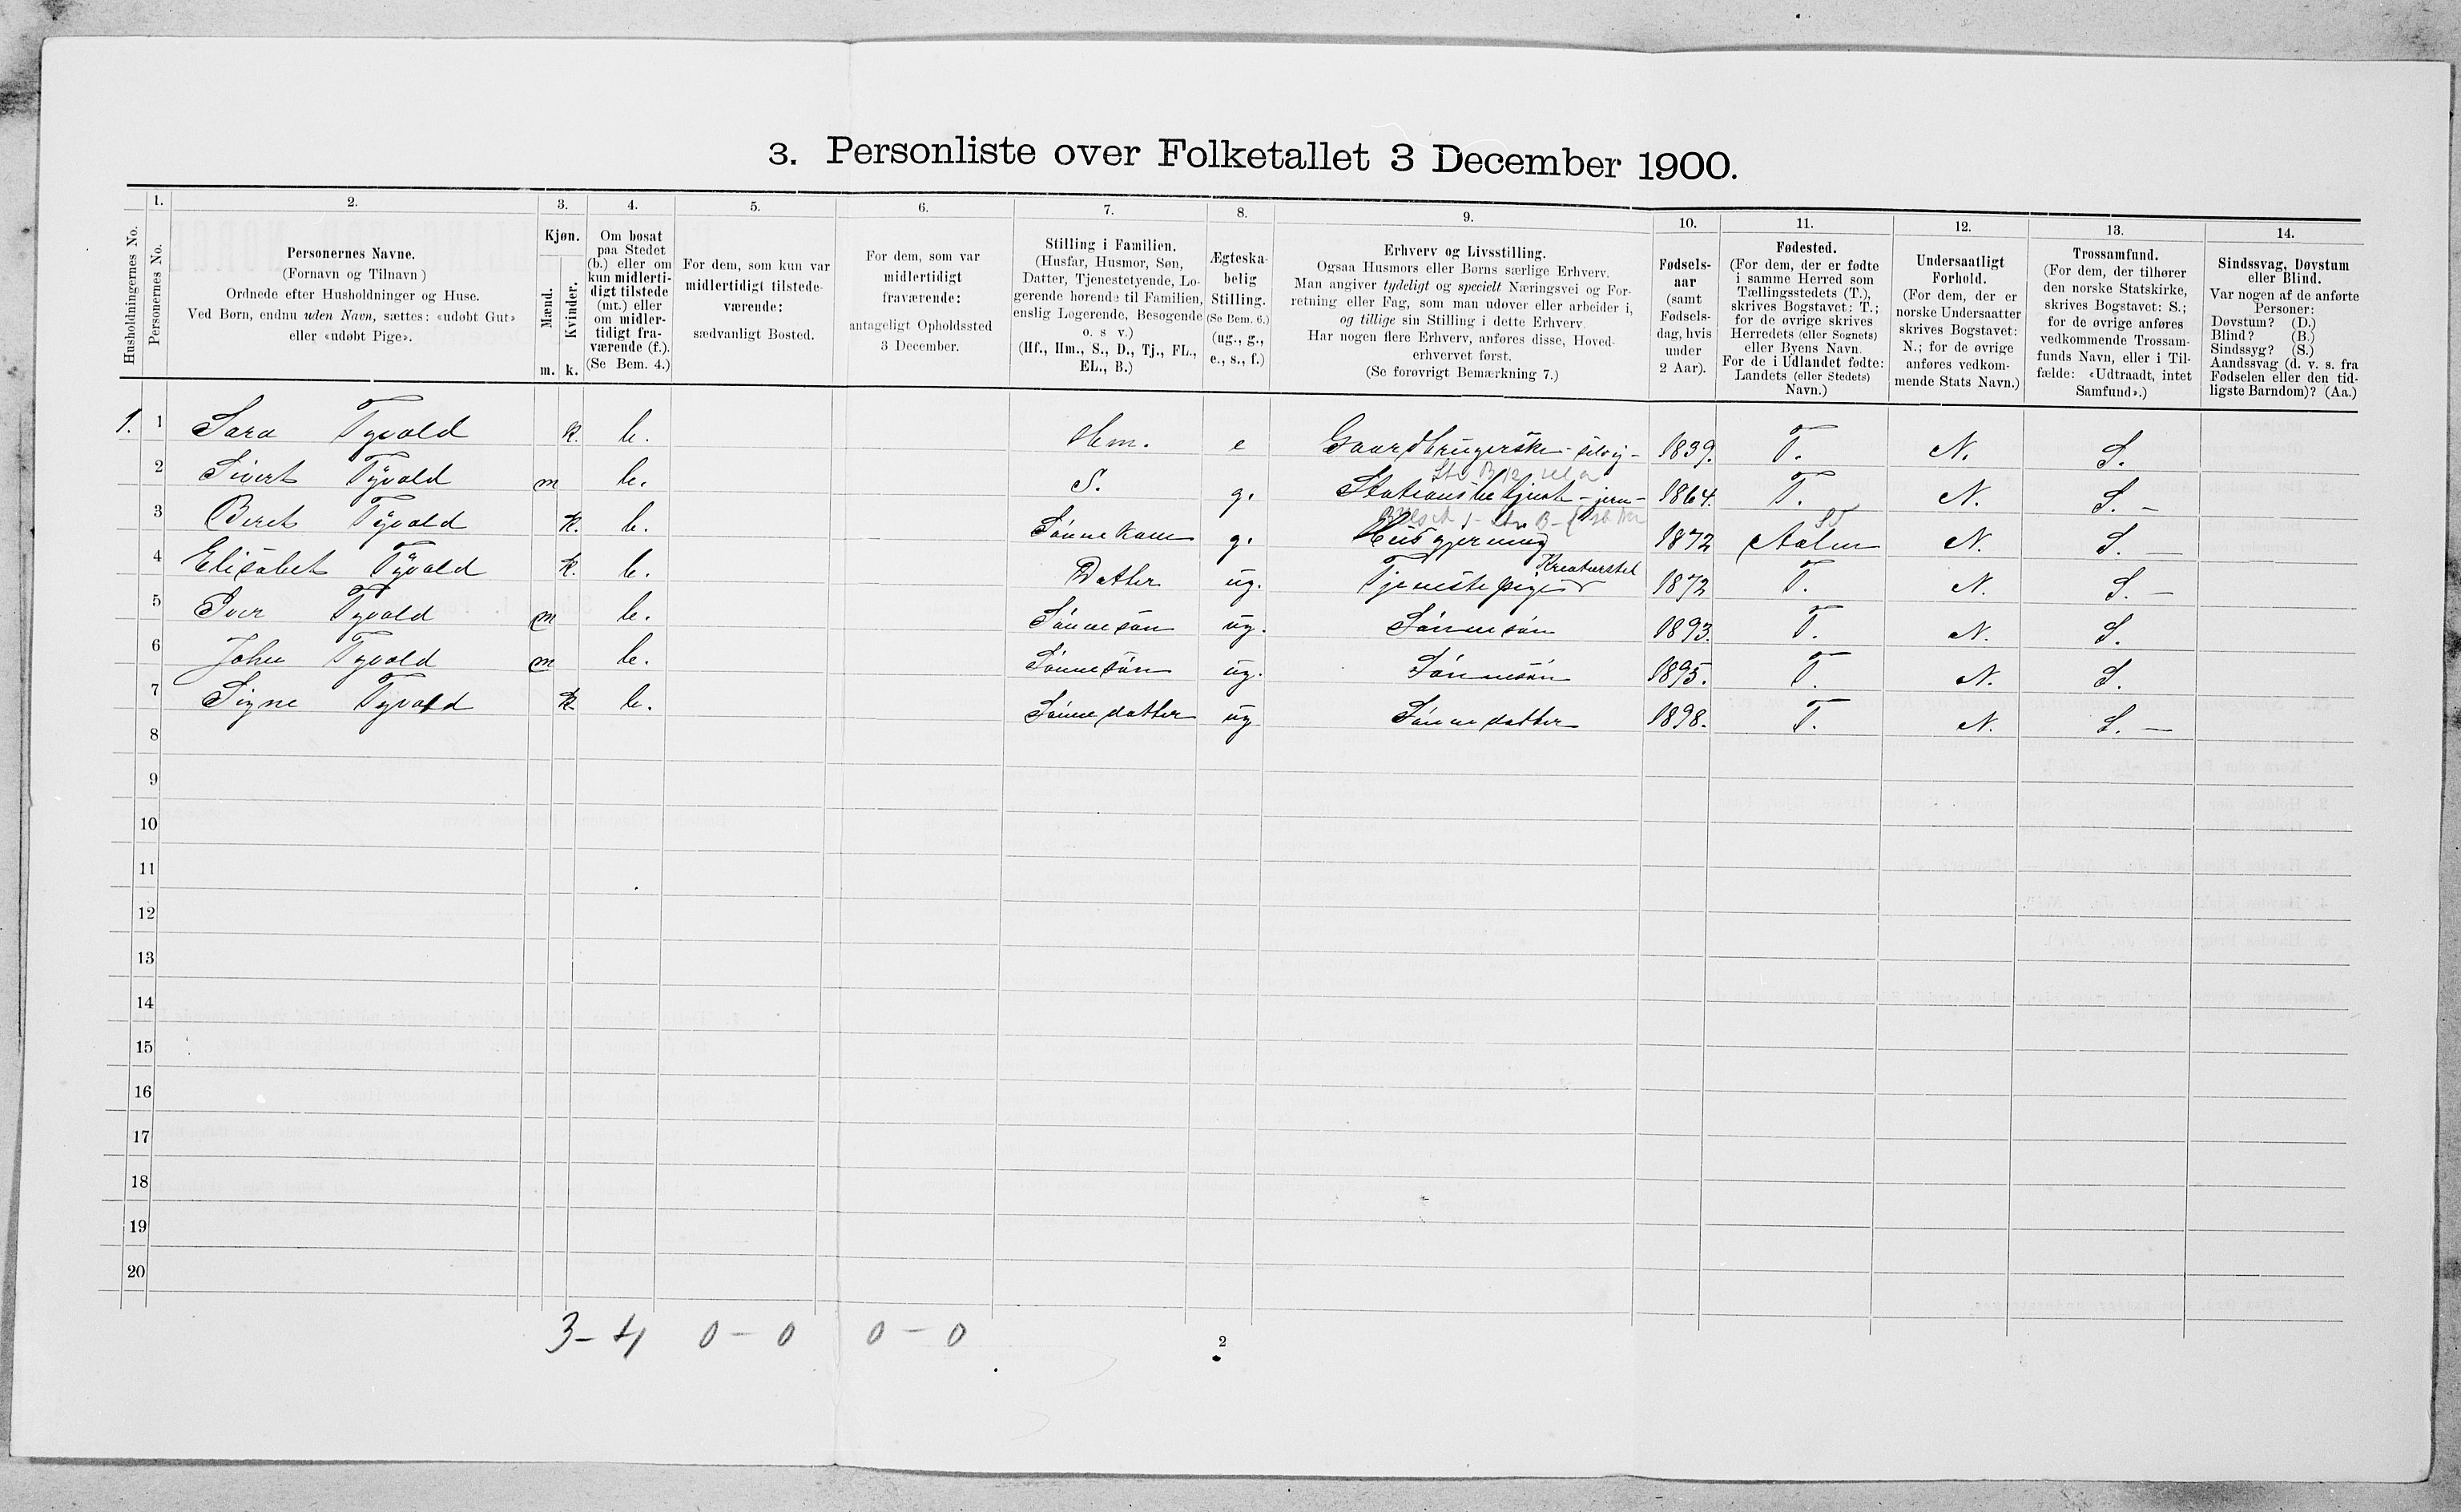 3. Personliste over Folketallet 3 December 1900.
Husholdningernes No.
1.
Personernes No.
2.
Personernes Navne.
(Fornavn og Tilnavn)
Ordnede efter Husholdninger og Huse.
Ved Børn, endnu uden Navn, sættes: «udøbt Gut»
eller «udøbt Pige».
3.
Kjøn.
Mænd.
Kvinder.
m. k.
4.
Om bosat
paa Stedet
(b.) eller om
kun midlerti-
digt tilstede
(mt.) eller
om midler-
tidigt fra-
værende (f.).
(Se Bem. 4.)
5.
For dem, som kun var
midlertidigt tilstede-
værende:
sædvanligt Bosted.
6.
For dem, som var
midlertidigt
fraværende:
antageligt Opholdssted
3 December.
7.
Stilling i Familien.
(Husfar, Husmor, Søn,
Datter, Tjenestetyende, Lo-
gerende hørende til Familien,
enslig Logerende, Besøgende
o. s v.)
(Hf., Hm., S., D., Tj., FL.,
EL., B.)
8.
Ægteska-
belig
Stilling.
(Se Bem. 6.)
(ug., g.,
e., s., f.)
9.
Erhverv og Livsstilling.
Ogsaa Husmors eller Børns særlige Erhverv.
Man angiver tydeligt og specielt Næringsvei og For-
retning eller Fag, som man udøver eller arbeider i,
og tillige sin Stilling i dette Erhverv.
Har nogen flere Erhverv, anføres disse, Hoved-
erhvervet først.
(Se forøvrigt Bemærkning 7.)
10.
Fødsels-
aar
(samt
Fødsels-
dag, hvis
under
2 Aar).
11.
Fødested.
(For dem, der er fødte
i samme Herred som
Tællingsstedets (T.),
skrives Bogstavet: T.;
for de øvrige skrives
Herredets (eller Sognets)
eller Byens Navn.
For de i Udlandet fødte:
Landets (eller Stedets)
Navn.)
12.
Undersaatligt
Forhold.
(For dem, der er
norske Undersaatter
skrives Bogstavet:
N.; for de øvrige
anføres vedkom-
mende Stats Navn.)
13.
Trossamfund.
(For dem, der tilhører
den norske Statskirke,
skrives Bogstavet: S.;
for de øvrige anføres
vedkommende Trossam-
funds Navn, eller i Til-
fælde: «Udtraadt, intet
Samfund».)
14.
Sindssvag, Døvstum
eller Blind.
Var nogen af de anførte
Personer:
Døvstum? (D.)
Blind? (B.)
Sindssyg? (S.)
Aandssvag (d. v. s. fra
Fødselen eller den tid-
ligste Barndom)? (Aa.)
1. 1 Sara Tyvold k. b. Hm. e Gaardbrugerske - selvej - 1839. T. N. S.
2 Sivert Tyvold m b. S. g. Stationsbetjent - jern - 1864. T. N. S. -
3 Beret Tyvold k. b. Sønnekone g. Husgjerning 1872 Aalen N. S. -
4 Elisabet Tyvold k. b. Datter ug. Tjenestepige Kreaturstel 1872 T. N. S. -
5 Iver Tyvold m b. Sønnesøn ug. Sønnesøn 1893. T. N. S.
6 John Tyvold m b. Sønnesøn ug. Sønnesøn 1895. T. N. S.
7 Signe Tyvold k. b. Sønnedatter ug Sønnedatter 1898. T. N. S. -
8
9
10
11
12
13
14
15
16
17
18
19
20
3 - 4 0 - 0 0 - 0
2